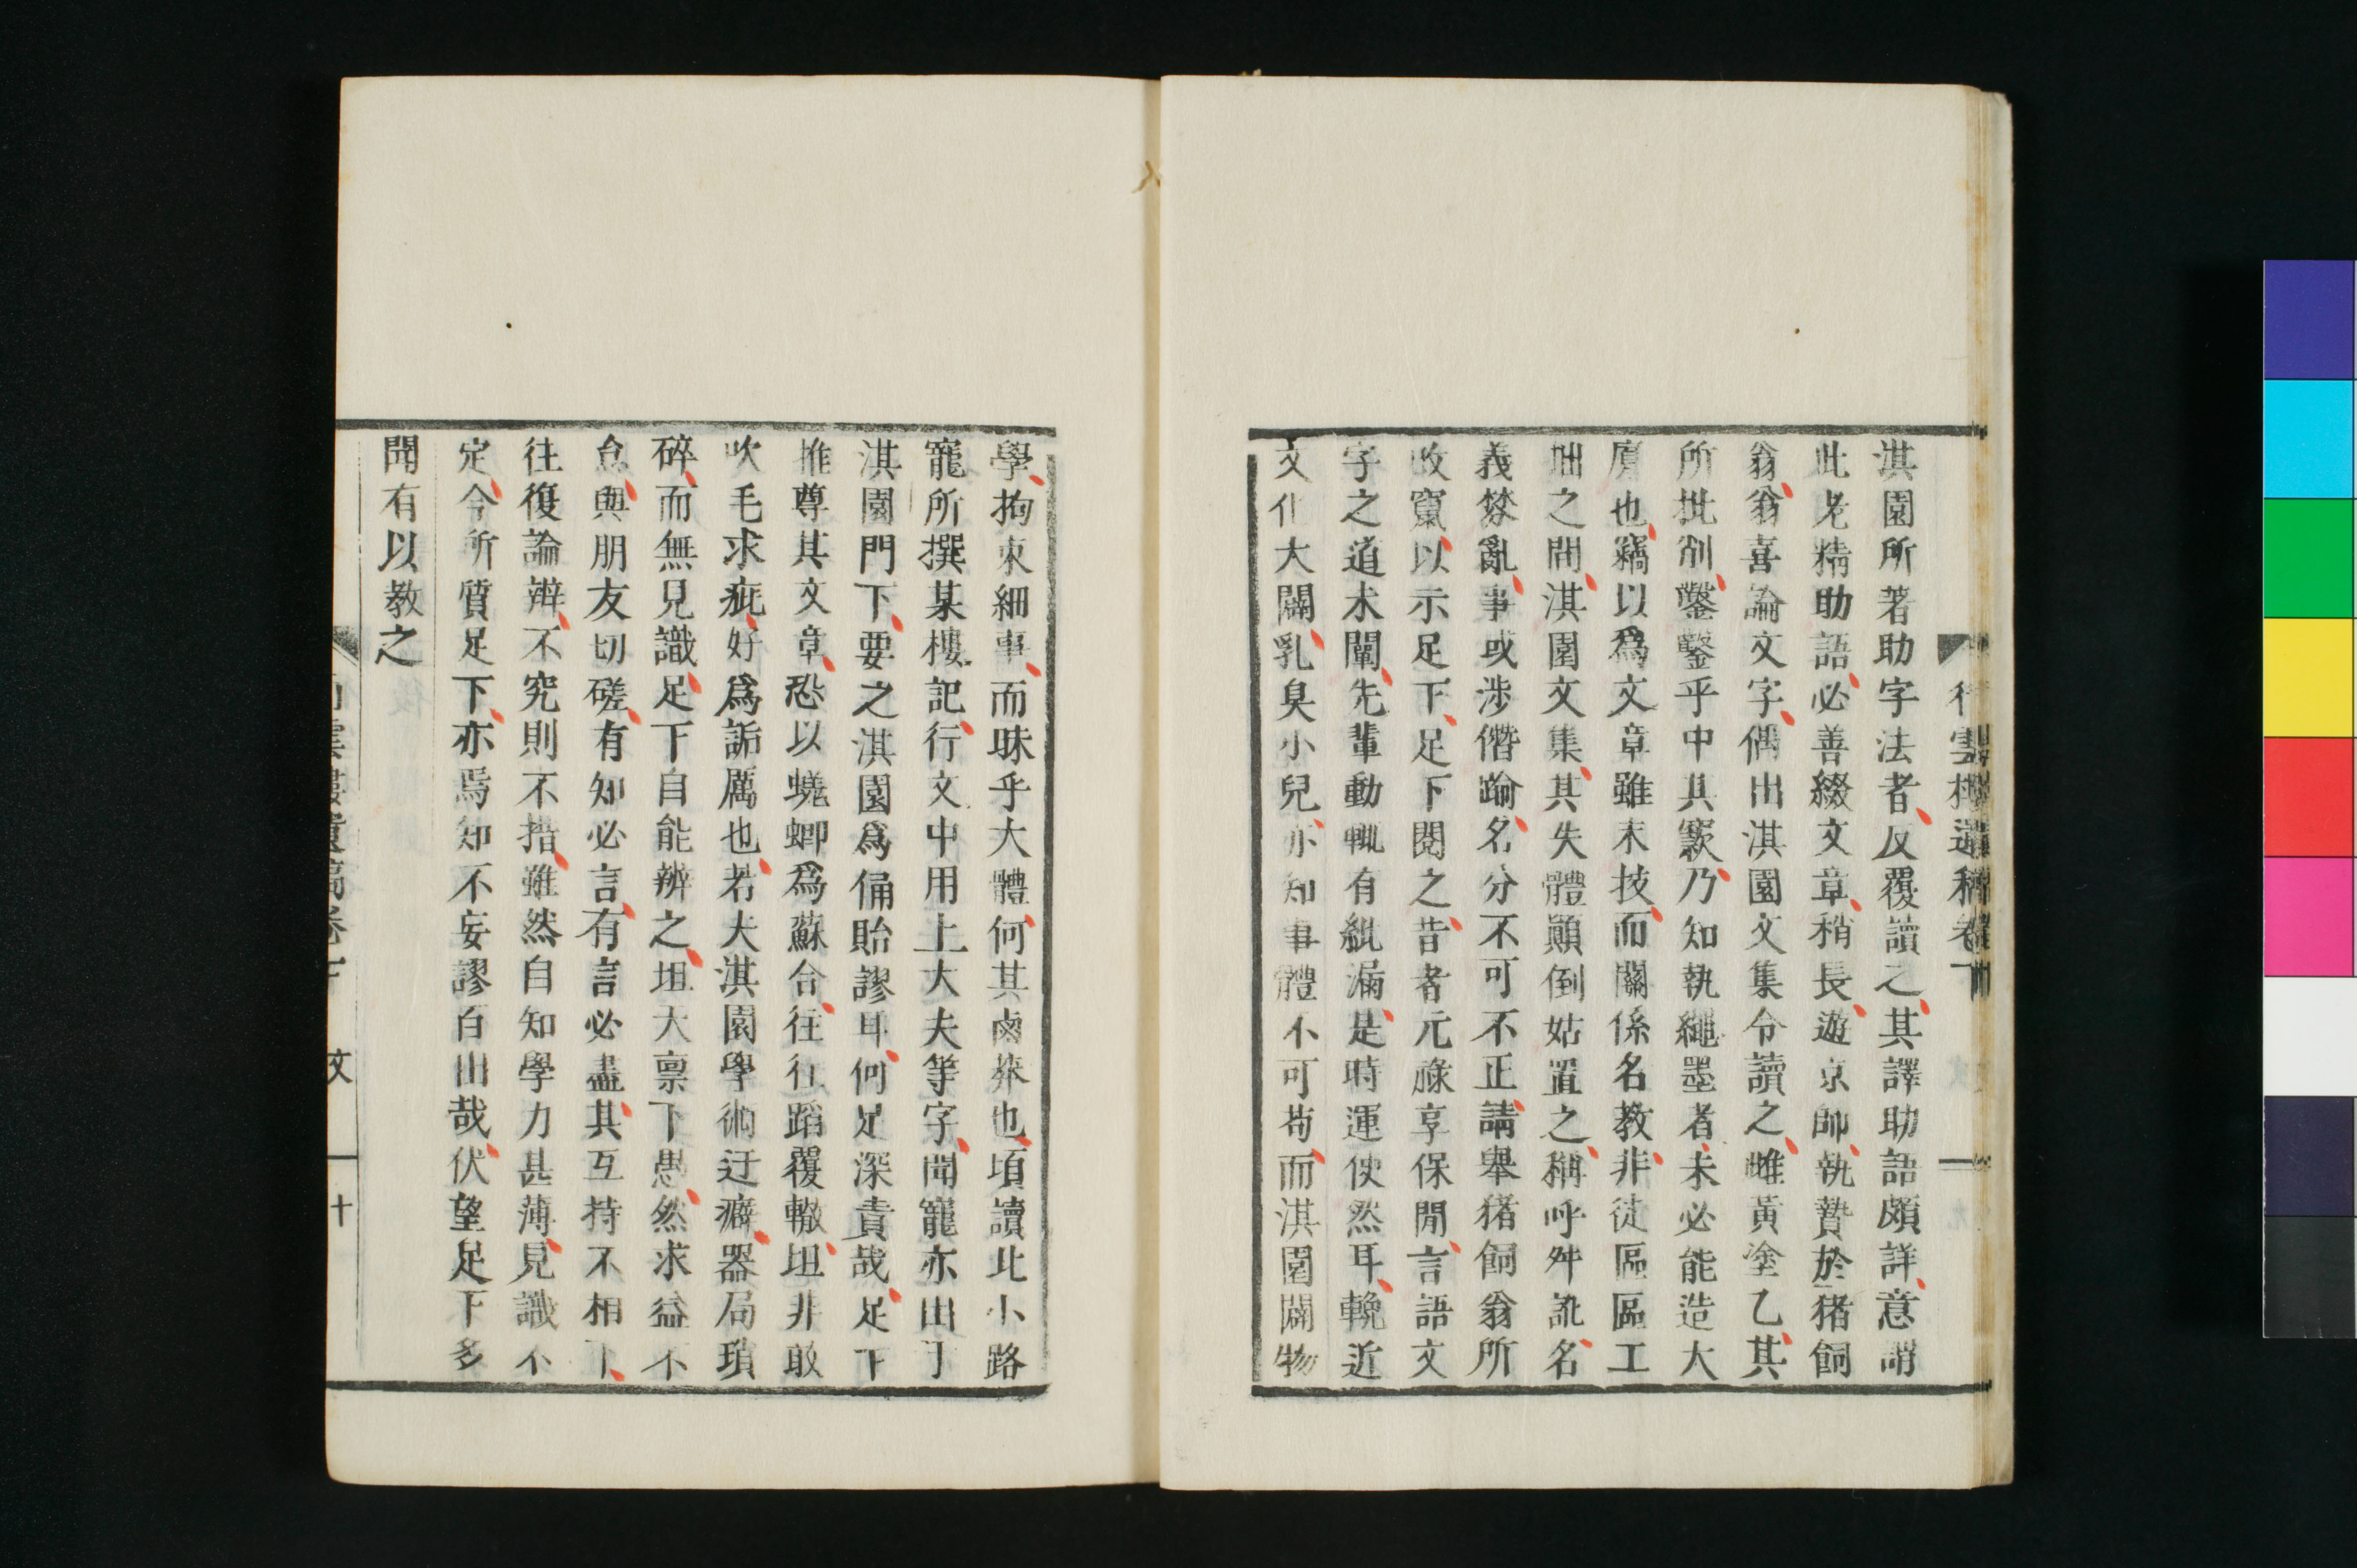 淇園所著助字法者反覆讀之其譯助語頗詳意謂
此老精助語必善綴文章稍長遊京師執贄於猪飼
翁翁喜論文字偶出淇園文集令讀之雌黃塗乙其
所批削鑿鑿乎中其窾乃知執繩墨者未必能造大
廈也竊以爲文章雖末技而關係名教非徒區區工
拙之間淇園文集其失體顚倒姑置之稱呼舛訛名
義棼亂事或涉僭踰名分不可不正請舉猪飼翁所
改竄以示足下足下閱之昔者元祿享保間言語文
字之道未闡先輩動輒有紕漏是時運使然耳輓近
文化大闢乳臭小兒亦知事體不可苟而淇園開物
學拘束細事而昧乎大體何其鹵莽也頃讀北小路
寵所撰某樓記行文中用上大夫等字聞寵亦出于
淇園門下要之淇園爲俑貽謬耳何足深責哉足下
推尊其文章恐以蟯蜋爲蘇合往往蹈覆轍坦非敢
吹毛求疵好爲詬厲也若夫淇園學術迂癖器局瑣
碎而無見識足下自能辨之坦大禀下愚然求益不
怠與朋友切磋有知必言有言必盡其互持不相下
往復論辨不究則不措雖然自知學力甚薄見識不
定今所質足下亦焉知不妄謬百出哉伏望足下多
聞有以教之
行雲樓遺稿卷下 文 十